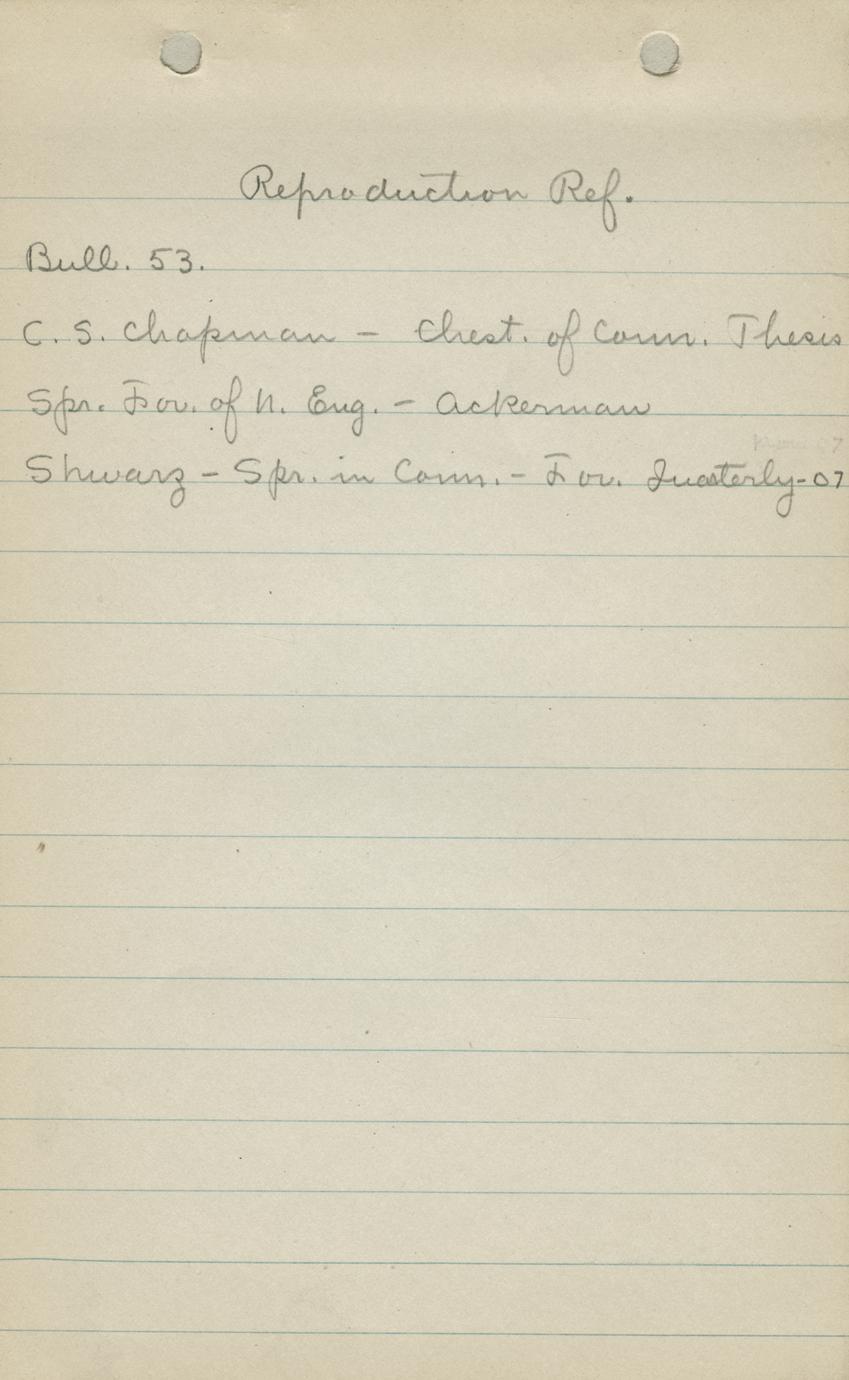 Reproduction Ref.
Bull. 53.
C. S. Chapman - Chest. of Conn. Thesis
Spr. For. of N. Eng. - Ackerman
Shwarz - Spr. in Conn. - For. Quaterly-07